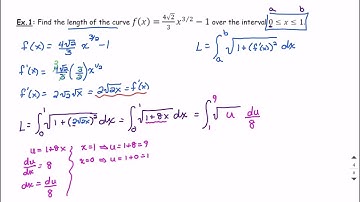 Ex.1: Find the length of the curve f(x) = 4√2/3 x^{3/2} − 1 over the interval 0 ≤ x ≤ 1.
a b
f(x) = 4√2/3 x^{3/2} − 1
L = ∫_a^b √(1+(f'(x))²) dx
f'(x) = 4√2/3 (3/2) x^{1/2}
f'(x) = 2√2 √x = 2√2x = f'(x)
L = ∫_0^1 √(1+(2√2x)²) dx = ∫_0^1 √(1+8x) dx = ∫_1^9 √u du/8
u = 1+8x
du/dx = 8
dx = du/8
x=1 ⇒ u=1+8=9
x=0 ⇒ u=1+0=1